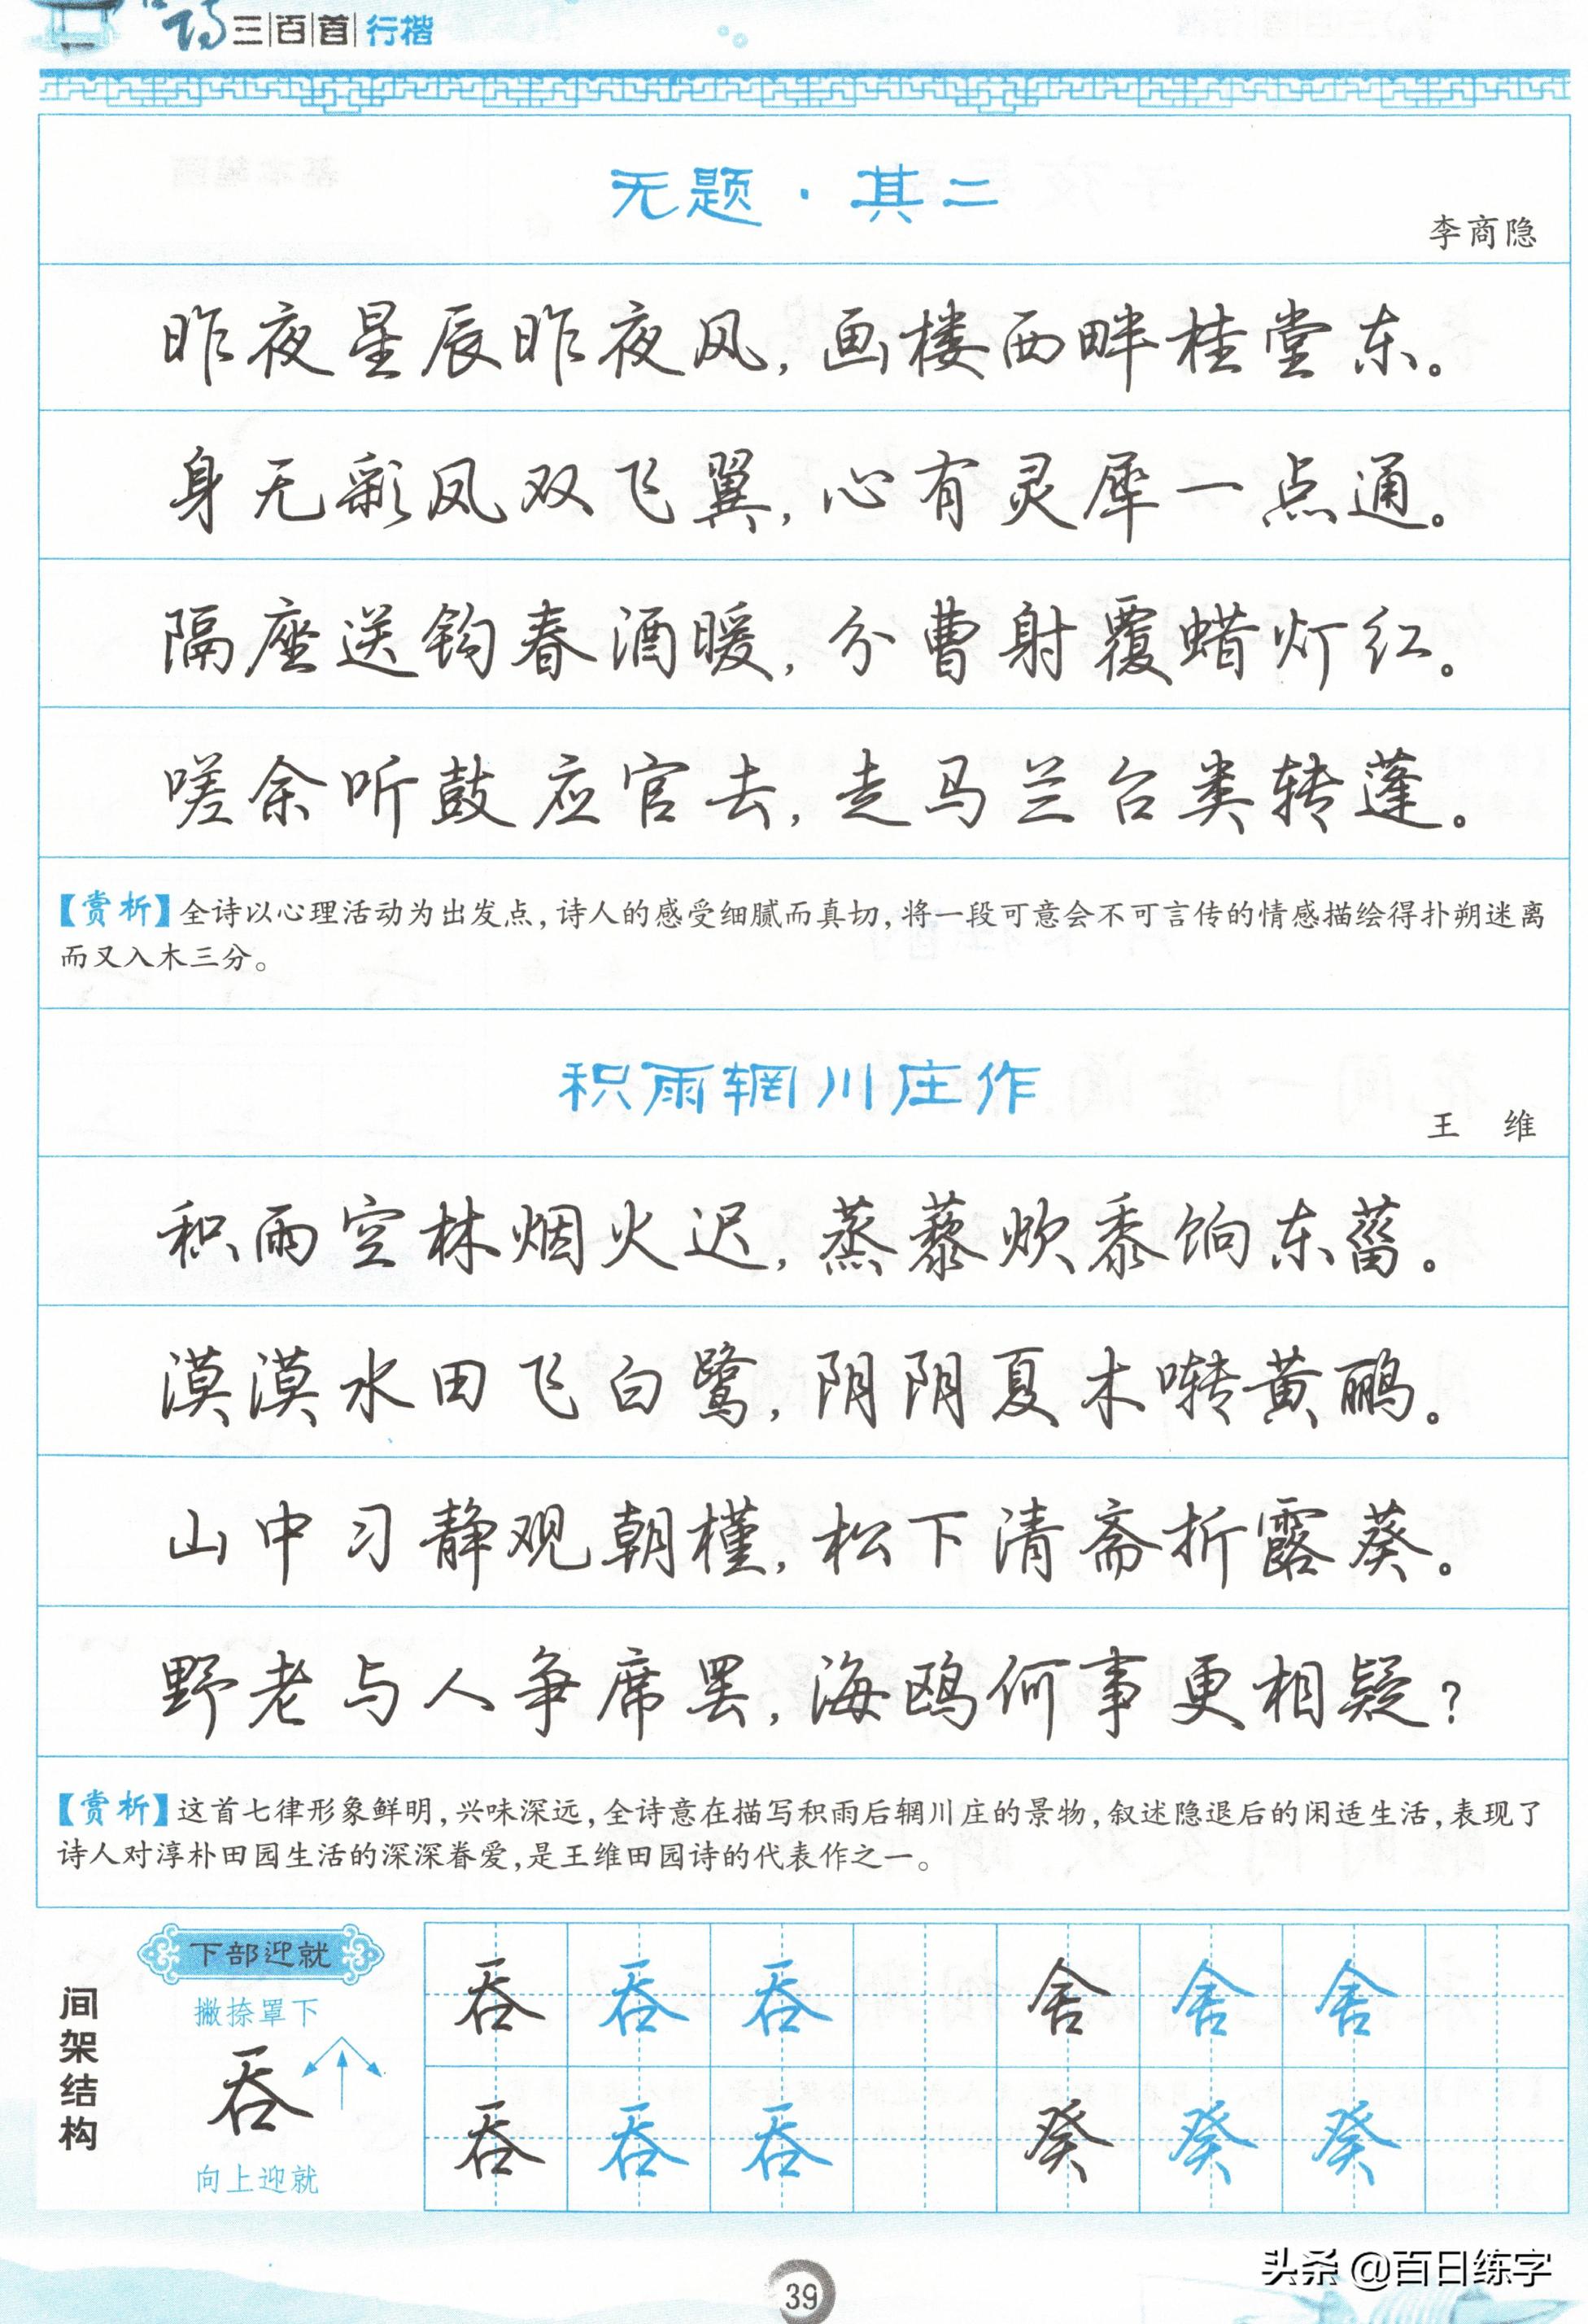 诗三百首行楷
无题·其二
李商隐
昨夜星辰昨夜风，画楼西畔桂堂东。
身无彩凤双飞翼，心有灵犀一点通。
隔座送钩春酒暖，分曹射覆蜡灯红。
嗟余听鼓应官去，走马兰台类转蓬。
【赏析】全诗以心理活动为出发点，诗人的感受细腻而真切，将一段可意会不可言传的情感描绘得扑朔迷离
而又入木三分。
积雨辋川庄作
王 维
积雨空林烟火迟，蒸藜炊黍饷东菑。
漠漠水田飞白鹭，阴阴夏木啭黄鹂。
山中习静观朝槿，松下清斋折露葵。
野老与人争席罢，海鸥何事更相疑？
【赏析】这首七律形象鲜明，兴味深远，全诗意在描写积雨后辋川庄的景物，叙述隐退后的闲适生活，表现了
诗人对淳朴田园生活的深深眷爱，是王维田园诗的代表作之一。
间架结构
下部迎就
撇捺罩下
吞
向上迎就
吞 吞 吞 舍 舍 舍
吞 吞 吞 癸 癸 癸
39
头条 @百日练字